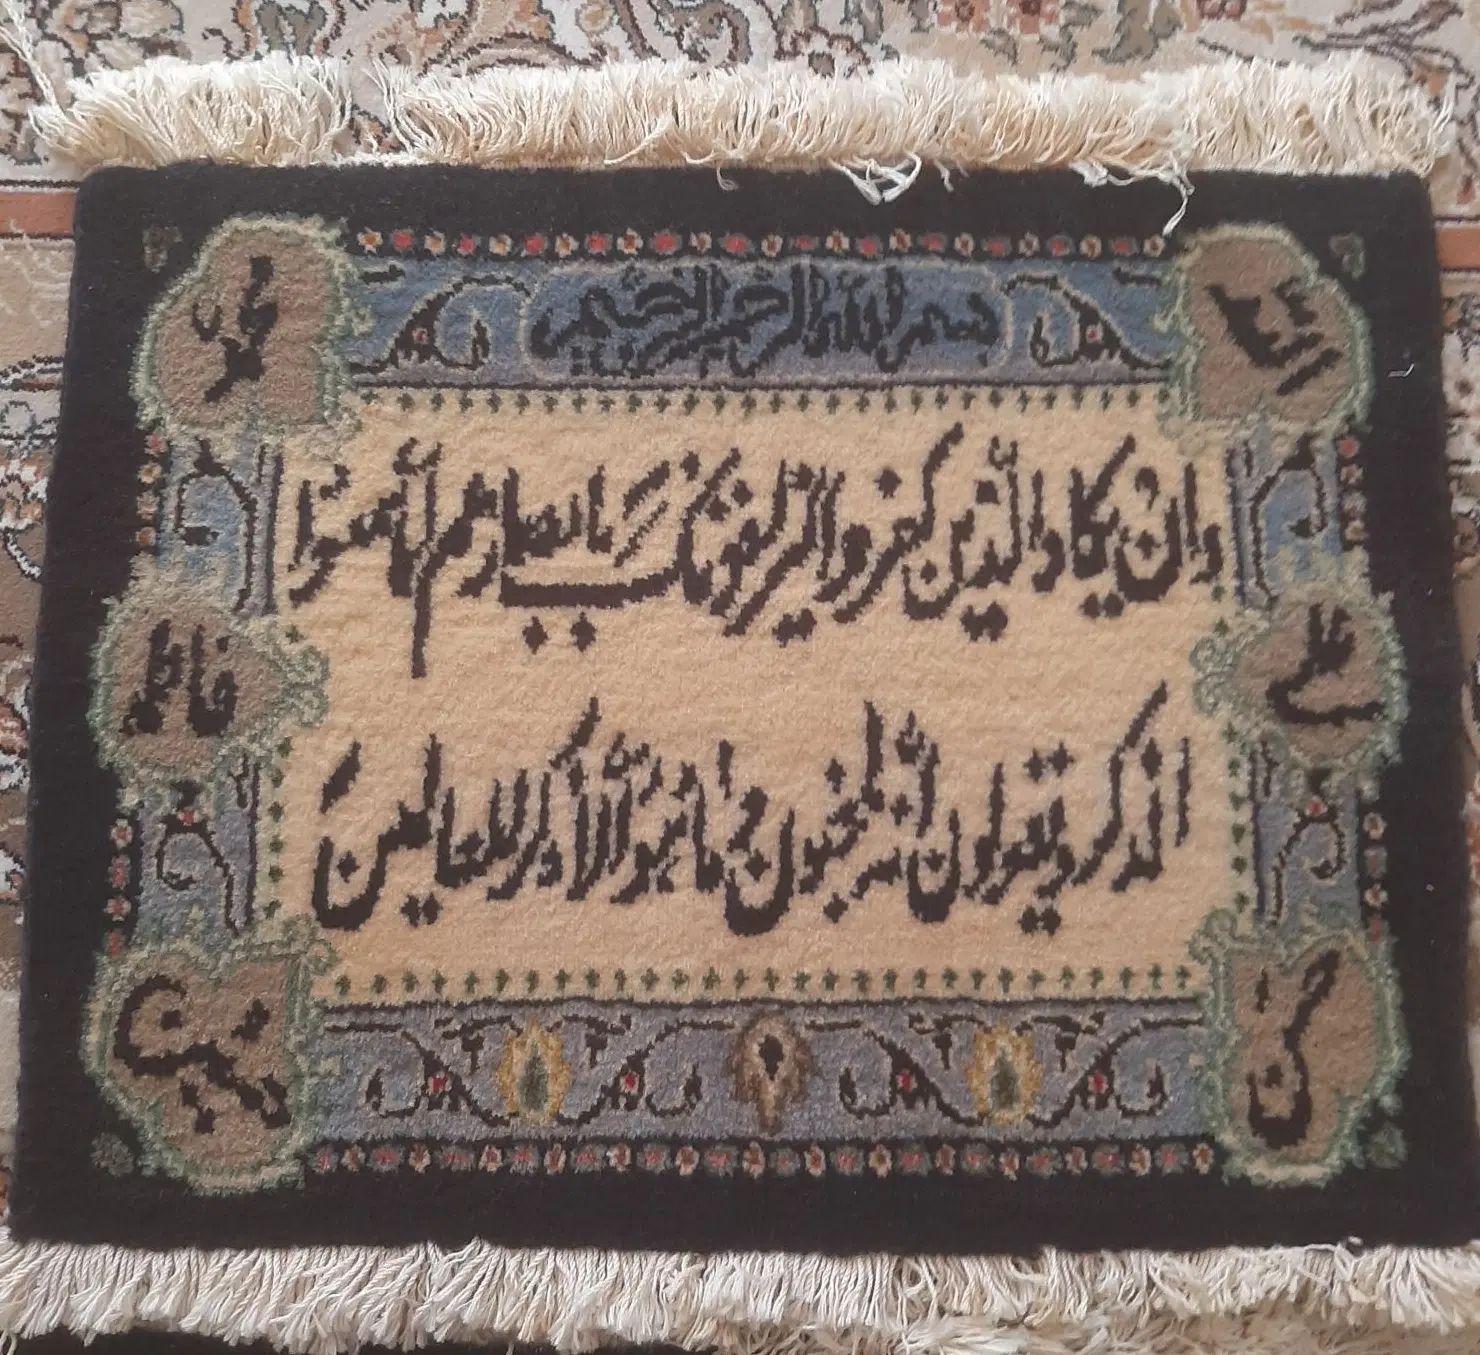 الله
بسم الله الرحمن الرحیم
محمد
وان یکاد الذین کفروا لیزلقونک بابصارهم لما سمعوا
علی
فاطمه
الذکر و یقولون انه لمجنون و ما هو الا ذکر للعالمین
حسن
حسین